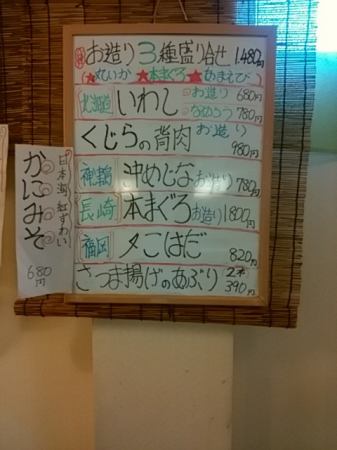 お造り3種盛り合せ 1,480円
本まぐろ★あまえび
北海道 いわし お造り 680円
なめろう 780円
くじらの背肉 お造り 980円
沖めじな お造り 780円
長崎 本まぐろ お造り 1800円
福岡 夕こはだ 820円
さつま揚げのあぶり 2本 390円
日本海 紅ずわい
かにみそ
680円